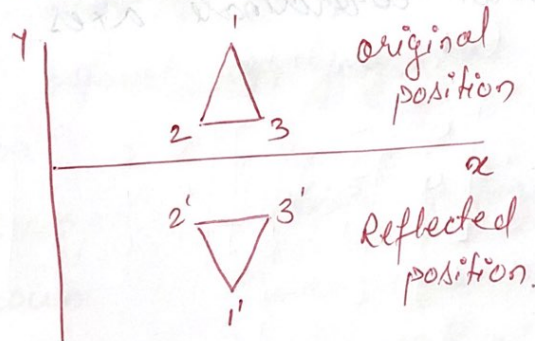 Y
1
original
position
2 3
x
2' 3'
Reflected
position.
1'